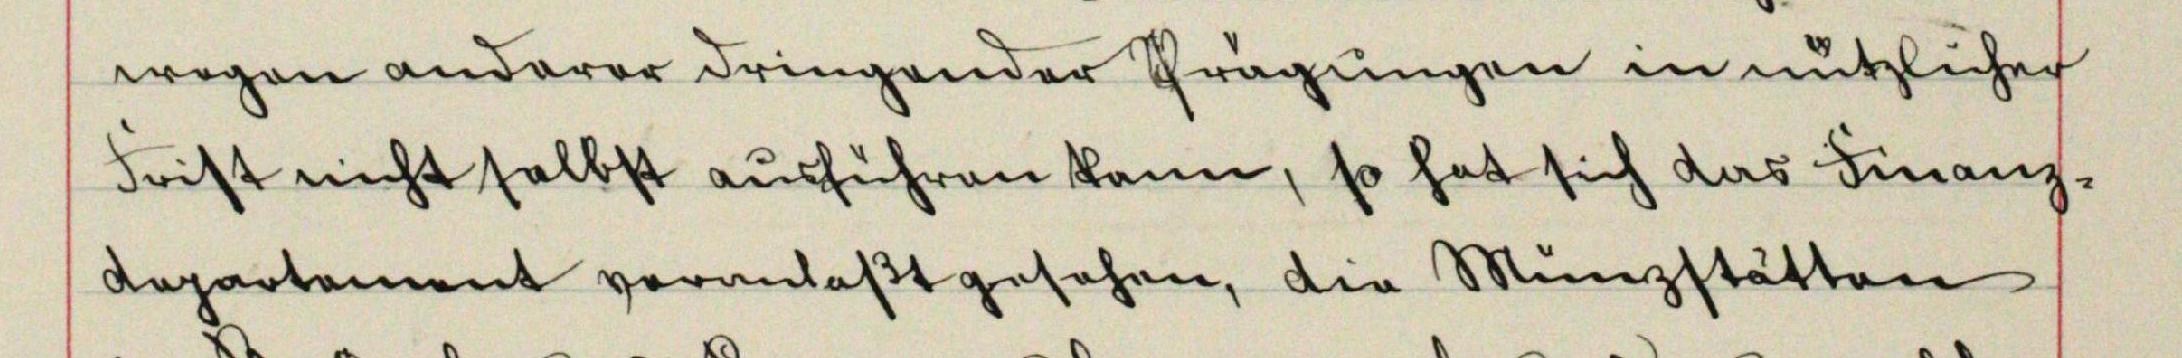 wegen anderer dringender Prägungen in nützlicher
Frist nicht selbst ausführen kann, so hat sich das Finanz-
departement veranlaßt gesehen, die Münzstätten